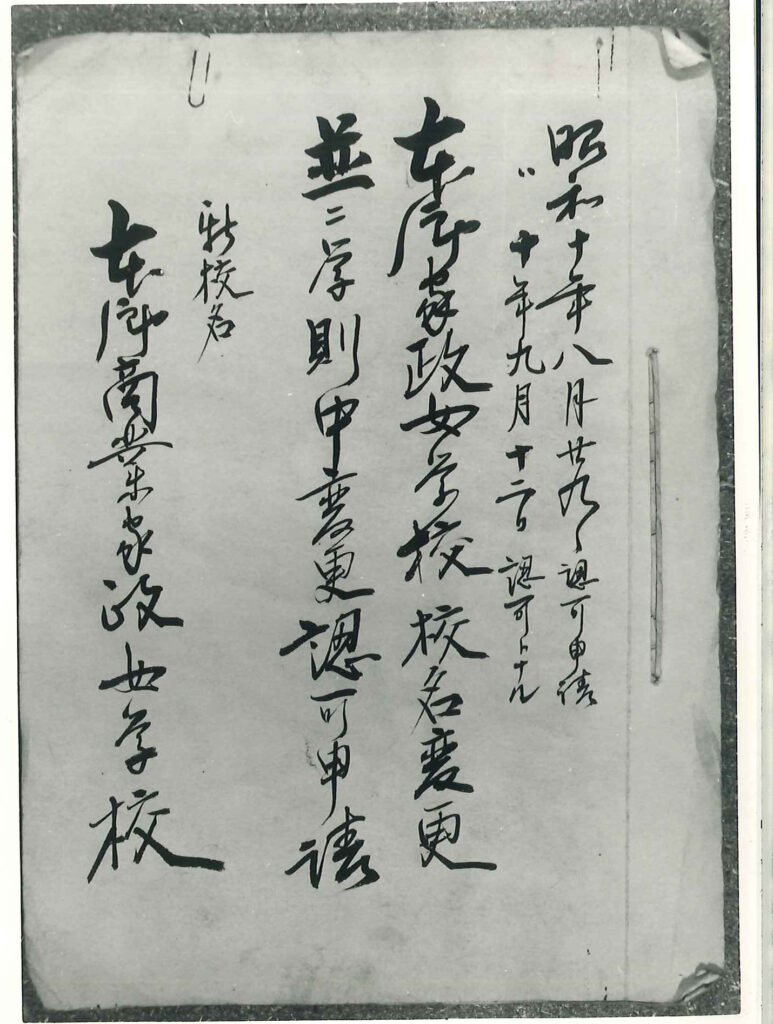 昭和十年八月廿九日認可申請
〃十年九月十二日認可トナル
本郷家政女学校校名変更
並ニ学則中変更認可申請
新校名
本郷商業家政女学校